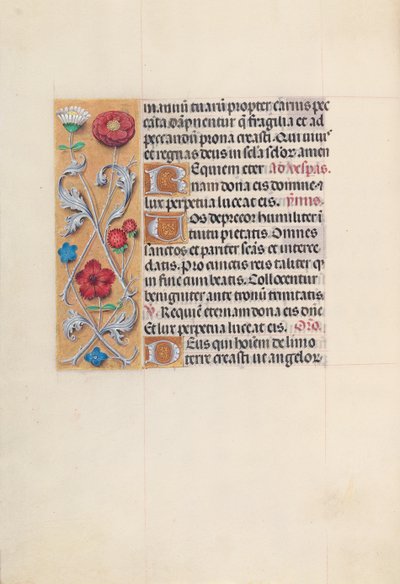 manuū tuarū propter carnis pec
cata dāpnentur q̄ fragilia et ad
peccandū prona creasti. Qui viuis
et regnas deus in scla sclor amen
Requiem eter Ad vespas.
nam dona eis domine.
lux perpetua luceat eis. ymnis.
Uos deprecor humiliter ī
tuitu pietatis. Omnes
sanctos et pariter scās et interce
datis. Pro cunctis reis taliter q̄
in fine cum beatis. Collocentur
benigniter ante tronū trinitatis
V. Requiē eternam dona eis dn̄e
Et lux perpetua luceat eis. Orō.
Deus qui hoīem de limo
terre creasti ut angelor